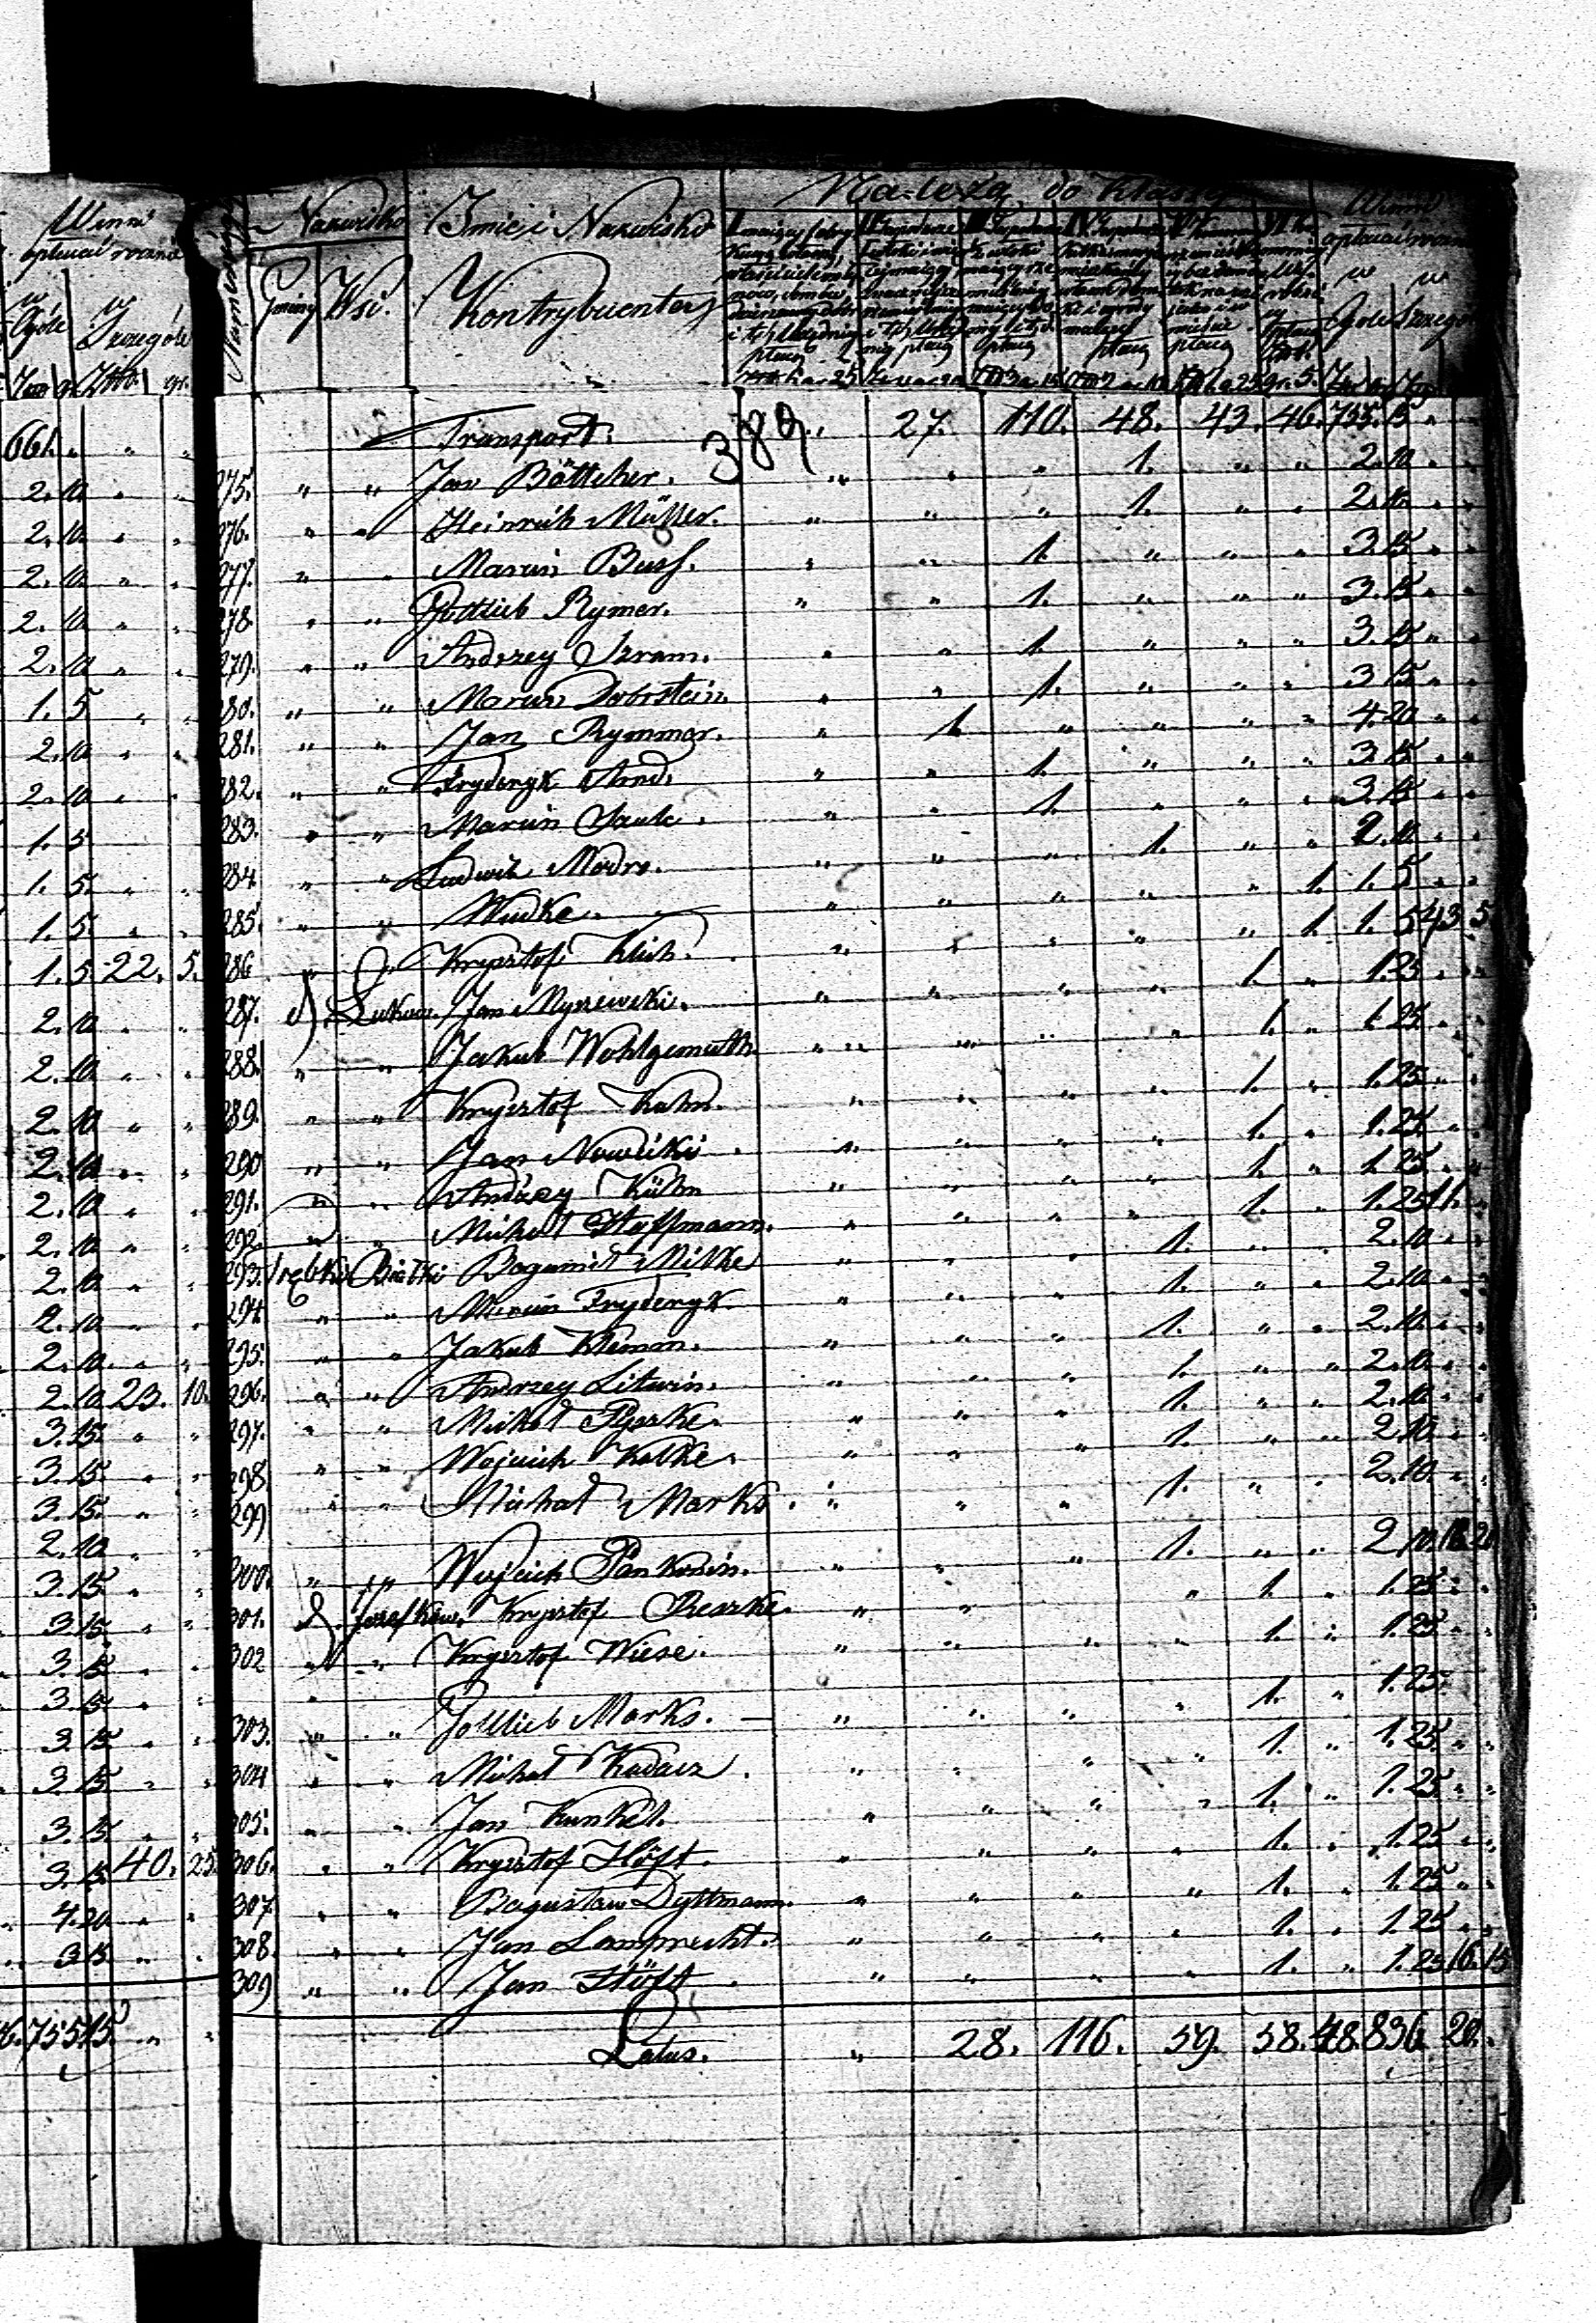 Winni
opłacać rocznie
w Ogóle w Szczególe
661. " " "
2. 10 " "
2. 10 " "
2. 10 " "
2. 10 " "
2. 10 " "
1. 5. " "
2. 10 " "
2. 10 " "
1. 5
1. 5. " "
1. 5. " "
1. 5. 22. 5.
2. 10 " "
2. 10 " "
2. 10 " "
2. 10 " "
2. 10 " "
2. 10 " "
2. 10 " "
2. 10 " "
2. 10 " "
2. 10 23. 10.
3. 15. " "
3. 15. " "
3. 15. " "
2. 10 " "
3. 15. " "
3. 15. " "
3. 15 " "
3. 15 " "
3. 15. " "
3. 15 " "
3. 15 " "
3. 15. 40. 25.
4. 20 " "
3. 15 " "
755 15. " "
Nazwisko Imie i Nazwisko Należą do Klassy Winni
opłacać rocznie
Gminy Wsi. Kontrybuenta w Ogóle w Szczególe
Transport. 389. " 27. 110. 48. 43. 46. 755. 15 " "
275. " " Jan Böttcher. " " " 1. " " 2. 10 " "
276. " " Heinrich Müller. " " " 1. " " 2. 10. " "
277. " " Marcin Buss. " " 1. " " " 3. 15 " "
278. " " Gottlieb Rymer. " " 1. " " " 3. 15 " "
279. " " Andrzey Szram. " " 1. " " " 3. 15 " "
280. " " Marcin Dobrstein. " " 1. " " " 3. 15 " "
281. " " Jan Rymmer. " 1. " " " " 4. 20 " "
282. " " Fryderyk Arnd. " " 1. " " " 3. 15. " "
283. " " Marcin Sauk. " " 1. " " " 3. 15 " "
284. " " Ludwik Modro. " " " 1. " " 2. 10. " "
285. " " Wudke. " " " " " 1. 1. 5 " "
286 " " Krysztof Klich. " " " " " 1. 1. 5 43. 5
287. d Łukow. Jan Myszewski. " " " " 1. " 1. 25 " "
288. " " Jakub Wohlgemuth " " " " 1. " 1. 25. " "
289. " " Krysztof Kahn. " " " " 1. " 1. 25. " "
290 " " Jan Nowicki. " " " " 1. " 1. 25. " "
291. " " Andrzey Kühn " " " " 1. " 1. 25. " "
292. " " Michał Hoffmann. " " " " 1. " 1. 25 11. "
293. Trębki Białki Bogumił Milke " " " 1. " " 2. 10 " "
294. " " Marcin Fryderyk. " " " 1. " " 2. 10. " "
295. " " Jakub Klemm. " " " 1. " " 2. 10. " "
296. " " Andrzey Litwin. " " " 1. " " 2. 10. " "
297. " " Michał Pjeske. " " " 1. " " 2. 10. " "
298. " " Wojciech Kolke. " " " 1. " " 2. 10. " "
299 " " Michał Marks. " " " 1. " " 2. 10. " "
300. " " Wojciech Pankonin. " " " 1. " " 2. 10. 18. 20
301. d Jozefkow. Krysztof Reszke. " " " " 1. " 1. 25. " "
302 " " Krysztof Wiese. " " " " 1. " 1. 25. " "
303. " " Gottlieb Marks. " " " " 1. " 1. 25.
304 " " Michał Kadacz. " " " " 1. " 1. 25. " "
305. " " Jan Kunkel. " " " " 1. " 1. 25. " "
306. " " Krysztof Höft. " " " " 1. " 1. 25 " "
307. " " Bogusław Dyttmann. " " " " 1. " 1. 25 " "
308. " " Jan Lamprecht. " " " " 1. " 1. 25 " "
309 " " Jan Höft. " " " " 1. " 1. 25 16. 15
Latus. " 28. 116. 59. 58. 48. 836. 20. "